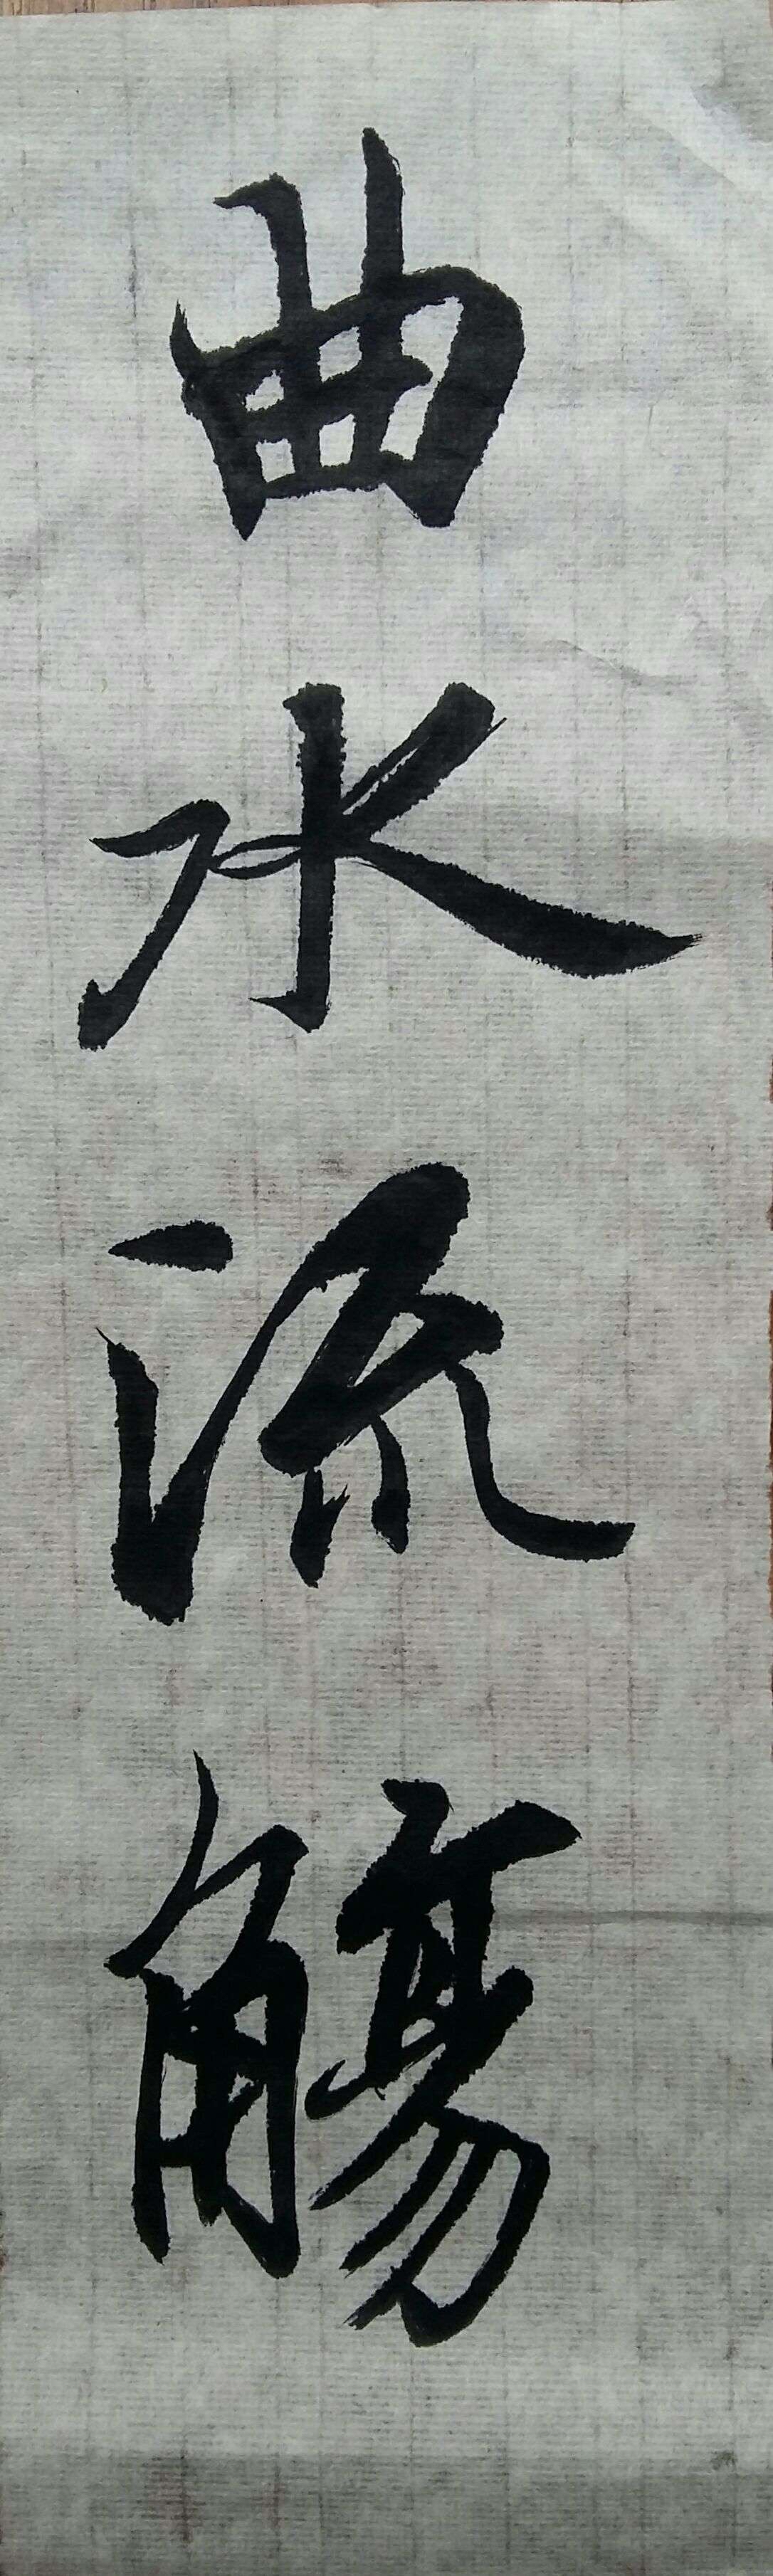 曲水流觴